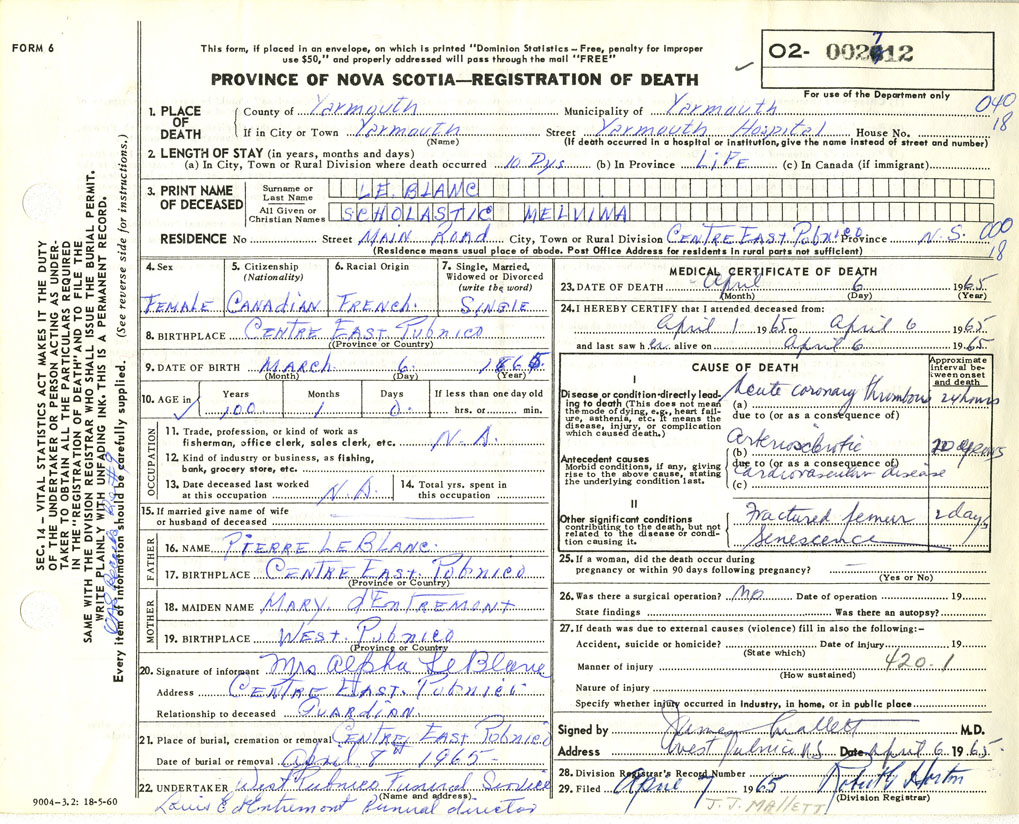 FORM 6
This form, if placed in an envelope, on which is printed "Dominion Statistics – Free, penalty for improper
use $50," and properly addressed will pass through the mail "FREE"
PROVINCE OF NOVA SCOTIA—REGISTRATION OF DEATH
O2- 002712
For use of the Department only
040
18
1. PLACE OF DEATH County of Yarmouth Municipality of Yarmouth
If in City or Town Yarmouth (Name) Street Yarmouth Hospital House No.
(If death occurred in a hospital or institution, give the name instead of street and number)
2. LENGTH OF STAY (in years, months and days)
(a) In City, Town or Rural Division where death occurred 10 Dys (b) In Province LiFE (c) In Canada (if immigrant)
3. PRINT NAME OF DECEASED
Surname or Last Name LE BLANC
All Given or Christian Names SCHOLASTIC MELVINA
RESIDENCE No Street MAIN ROAD City, Town or Rural Division CENTRE EAST PUBNICO Province N.S.
000
18
(Residence means usual place of abode. Post Office Address for residents in rural parts not sufficient)
4. Sex FEMALE
5. Citizenship (Nationality) CANADIAN
6. Racial Origin FRENCH.
7. Single, Married, Widowed or Divorced (write the word) SINGLE
8. BIRTHPLACE CENTRE EAST PUBNICO
(Province or Country)
9. DATE OF BIRTH MARCH 6 1865
(Month) (Day) (Year)
10. AGE in Years Months Days If less than one day old
100 1 0 hrs. or min.
OCCUPATION
11. Trade, profession, or kind of work as
fisherman, office clerk, sales clerk, etc. N.A.
12. Kind of industry or business, as fishing,
bank, grocery store, etc.
13. Date deceased last worked
at this occupation N.A.
14. Total yrs. spent in
this occupation
15. If married give name of wife
or husband of deceased
FATHER
16. NAME PIERRE LE BLANC.
17. BIRTHPLACE CENTRE EAST PUBNICO
(Province or Country)
MOTHER
18. MAIDEN NAME MARY. d'ENTREMONT
19. BIRTHPLACE WEST PUBNICO
(Province or Country)
20. Signature of informant Mrs Alpha LeBlanc
Address CENTRE EAST. PUBNICO
Relationship to deceased GUARDIAN
21. Place of burial, cremation or removal CENTRE EAST PUBNICO
Date of burial or removal April 8th 1965
22. UNDERTAKER West Pubnico Funeral Service
(Name and address)
Louis E d'Entremont Funeral director
9004—3.2: 18-5-60
MEDICAL CERTIFICATE OF DEATH
23. DATE OF DEATH April 6 1965
(Month) (Day) (Year)
24. I HEREBY CERTIFY that I attended deceased from:
April 1 1965 to April 6 1965
and last saw her alive on April 6 1965
CAUSE OF DEATH
Approximate interval between onset and death
I
Disease or condition directly leading to death (This does not mean the mode of dying, e.g., heart failure, asthenia, etc. It means the disease, injury, or complication which caused death.)
(a) Acute coronary thrombosis 24 hours
due to (or as a consequence of)
Antecedent causes
Morbid conditions, if any, giving rise to the above cause, stating the underlying condition last.
(b) Arteriosclerotic 20 years
due to (or as a consequence of)
(c) Cardiovascular disease
II
Other significant conditions
contributing to the death, but not related to the disease or condition causing it.
Fractured femur 2 days
Senescence
25. If a woman, did the death occur during
pregnancy or within 90 days following pregnancy? —
(Yes or No)
26. Was there a surgical operation? No Date of operation 19
State findings Was there an autopsy?
27. If death was due to external causes (violence) fill in also the following:—
Accident, suicide or homicide? Date of injury 19
(State which)
420.1
Manner of injury
(How sustained)
Nature of injury
Specify whether injury occurred in industry, in home, or in public place
Signed by James Mallett M.D.
Address West Pubnico N.S Date April 6 1965
28. Division Registrar's Record Number
29. Filed April 7 1965 Robert G Horton
(Division Registrar)
J.J. MALLETT
SEC. 14 – VITAL STATISTICS ACT MAKES IT THE DUTY
OF THE UNDERTAKER OR PERSON ACTING AS UNDER-
TAKER TO OBTAIN ALL THE PARTICULARS REQUIRED
IN THE "REGISTRATION OF DEATH" AND TO FILE THE
SAME WITH THE DIVISION REGISTRAR WHO SHALL ISSUE THE BURIAL PERMIT.
WRITE PLAINLY WITH UNFADING INK. THIS IS A PERMANENT RECORD.
Every item of information should be carefully supplied. (See reverse side for instructions.)